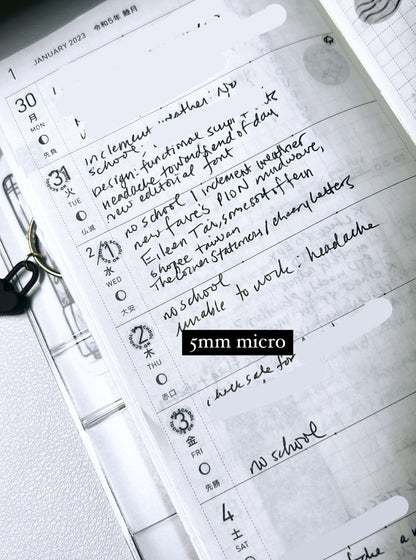 1 JANUARY 2023 令和5年 睦月
30
月
MON
先負
inclement weather: no
school
31
火
TUE
仏滅
Design: functional scrip
headache towards end of day
new editorial font
2/1
水
WED
大安
no school / inclement weather
new fave's PION mudwave,
Eileen Tai, somesortoffern
shopee taiwan
TheCornerStationers / cheeryletters
2
木
THU
赤口
no school
unable to work : headache
5mm micro
check sale for
3
金
FRI
先勝
no school
4
土
SAT